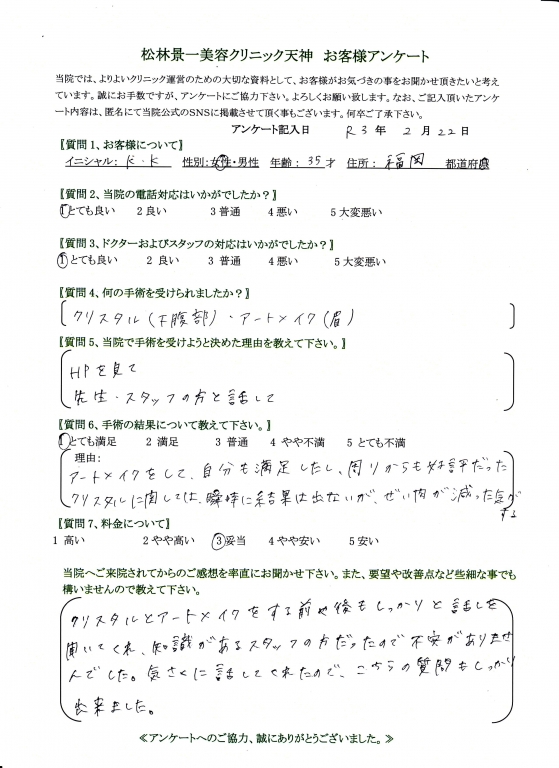 松林景一美容クリニック天神 お客様アンケート
当院では、よりよいクリニック運営のための大切な資料として、お客様がお気づきの事をお聞かせ頂きたいと考え
ています。誠にお手数ですが、アンケートにご協力下さい。よろしくお願い致します。なお、ご記入頂いたアンケ
ート内容は、匿名にて当院公式のSNSに掲載させて頂く事もございます。何卒ご了承下さい。
アンケート記入日 R3年 2月 22日
〖質問1、お客様について〗
イニシャル: K・K 性別:女性・男性 年齢: 35才 住所: 福岡 都道府県
〖質問2、当院の電話対応はいかがでしたか?〗
1とても良い 2 良い 3 普通 4 悪い 5 大変悪い
〖質問3、ドクターおよびスタッフの対応はいかがでしたか?〗
1とても良い 2 良い 3 普通 4 悪い 5 大変悪い
〖質問4、何の手術を受けられましたか?〗
クリスタル(下腹部)・アートメイク(眉)
〖質問5、当院で手術を受けようと決めた理由を教えて下さい。〗
HPを見て
先生・スタッフの方と話して
〖質問6、手術の結果について教えて下さい。〗
1とても満足 2 満足 3 普通 4 やや不満 5 とても不満
理由:
アートメイクをして、自分も満足したし、周りからも好評だった
クリスタルに関しては、瞬時に結果は出ないが、ぜい肉が減った気が
する
〖質問7、料金について〗
1 高い 2 やや高い 3妥当 4 やや安い 5 安い
当院へご来院されてからのご感想を率直にお聞かせ下さい。また、要望や改善点など些細な事でも
構いませんので教えて下さい。
クリスタルとアートメイクをする前や後もしっかりと話しを
聞いてくれ、知識があるスタッフの方だったので不安がありませ
んでした。気さくに話してくれたので、こちらの質問もしっかり
出来ました。
≪アンケートへのご協力、誠にありがとうございました。≫